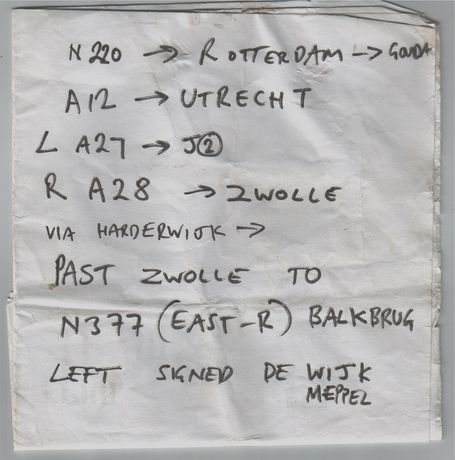 N220 → ROTTERDAM → GOUDA
A12 → UTRECHT
L A27 → J②
R A28 → ZWOLLE
VIA HARDERWIJK →
PAST ZWOLLE TO
N377 (EAST-R) BALKBRUG
LEFT SIGNED DE WIJK
MEPPEL